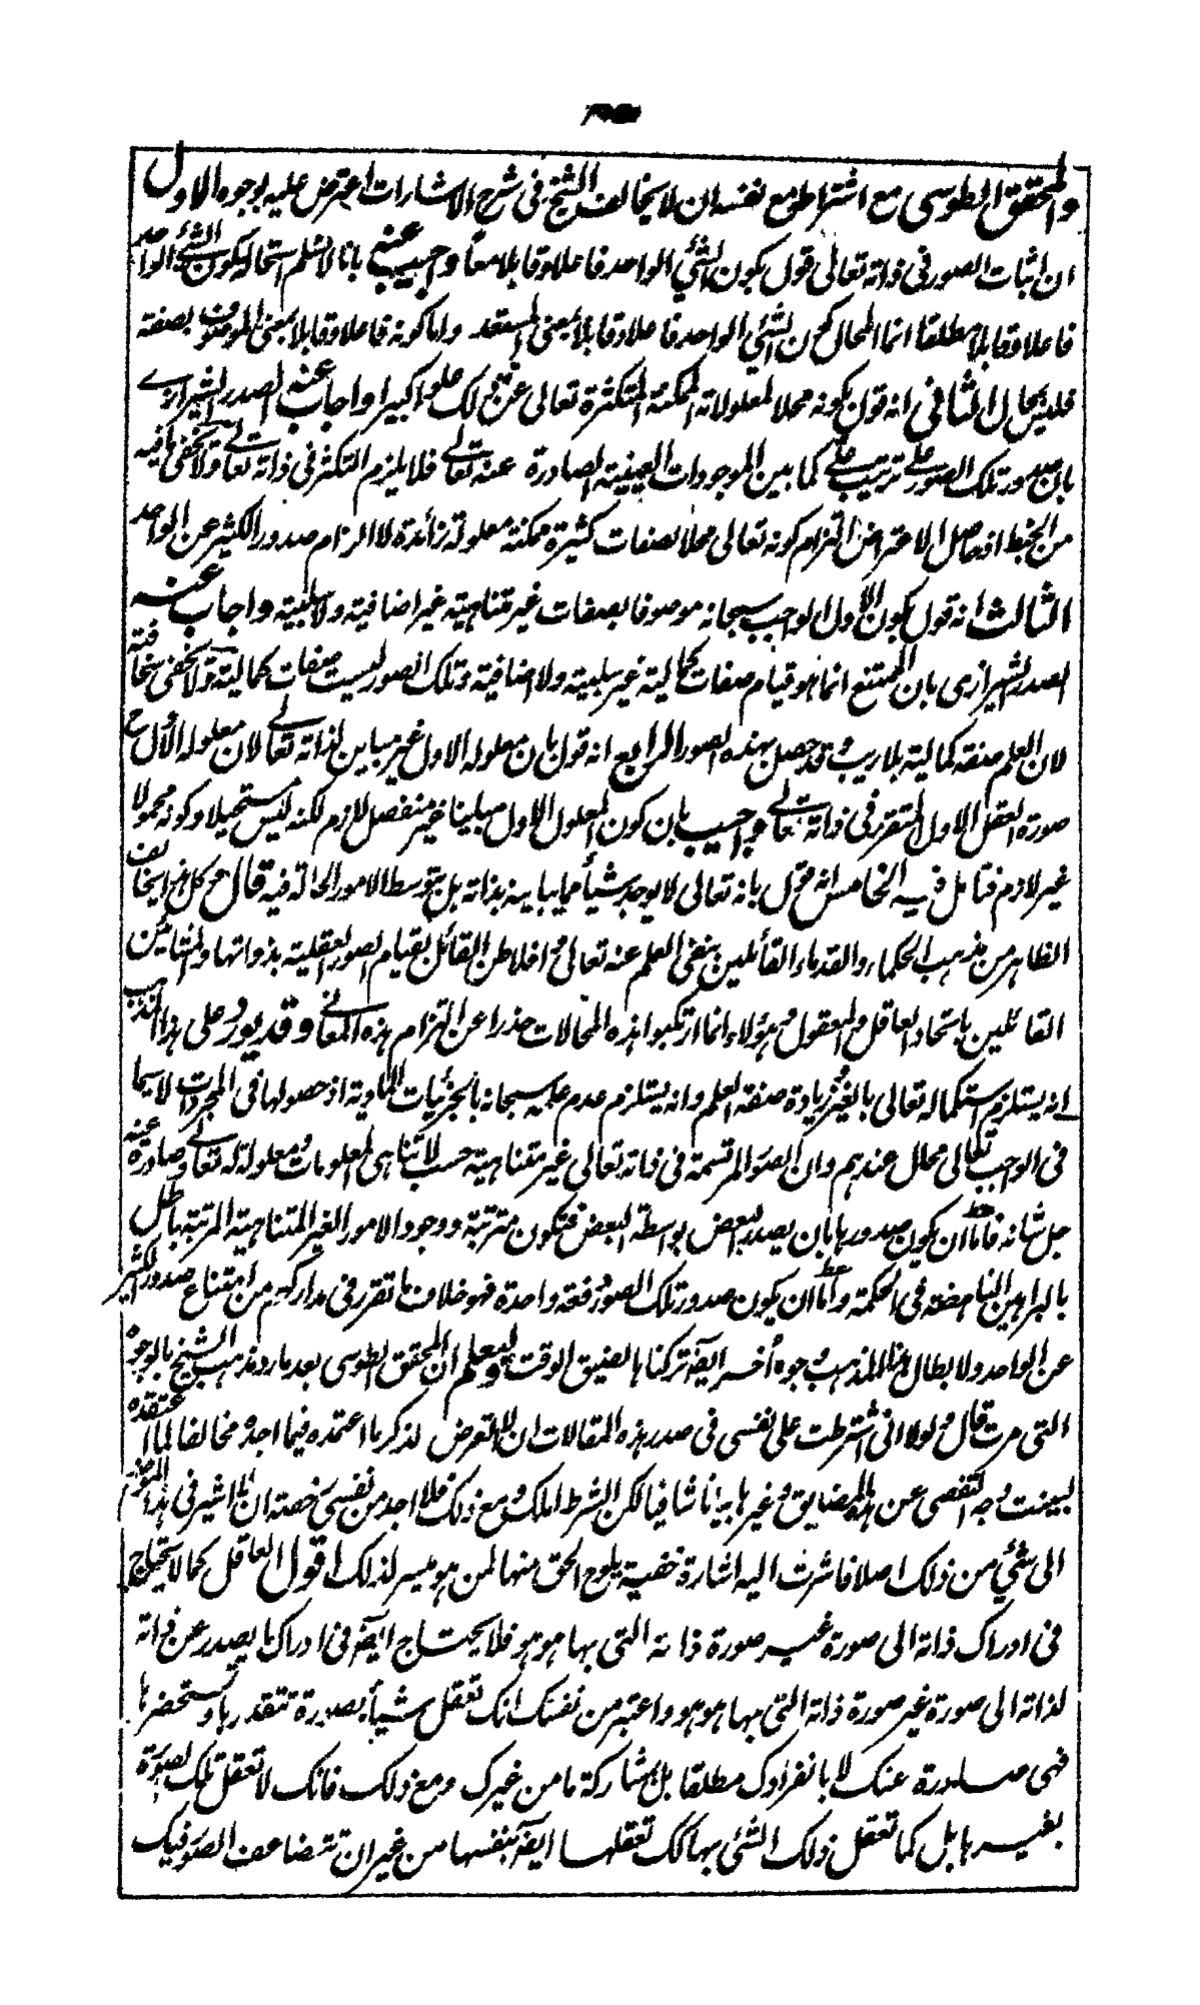 والمحقق الطوسى مع اشتراطه مع نفسه ان لا يخالف الشيخ فى شرح الاشارات اعترض عليه بوجوه الاول
ان اثبات الصور فى ذاته تعالى قول بكون الشئ الواحد فاعلا وقابلا معاً واجيب عنه بانا لا نسلم استحالة كون الشئ الواحد
فاعلا وقابلا مطلقا انما المحال كون الشئ الواحد فاعلا وقابلا بمعنى المستعد واما كونه فاعلا وقابلا بمعنى الموصوف بصفة
فليس بمحال الثانى انه قول بكونه محلا لمعلولاته الممكنة المتكثرة تعالى عن ذلك علوا كبيرا واجاب عنه الصدر الشيرازى
بان صدور تلك الصور على ترتيب على كما بين الموجودات العينية الصادرة عنه تعالى فلا يلزم التكثر فى ذاته تعالى ولا يخفى ما فيه
من الخبط اذ حاصل الاعتراض التزام كونه تعالى محلا بصفات كثيرة ممكنة معلولة زائدة لا الزام صدور الكثير عن الواحد
الثالث انه قول بكون الاول الواجب سبحانه موصوفا بصفات غير متناهية غير اضافية ولا سلبية واجاب عنه
الصدر الشيرازى بان الممتنع انما هو قيام صفات كمالية غير سلبية ولا اضافية وتلك الصور ليست صفات كمالية ولا يخفى سخافته
لان العلم صفة كمالية بلا ريب وقد حصل بهذه الصور الرابع انه قول بان معلوله الاول غير مباين لذاته تعالى لان معلوله الاول ح
صورة العقل الاول المتقرر فى ذاته تعالى واجيب بان كون المعلول الاول مباينا غير منفصل لازم لكنه ليس مستحيلا وكونه محمولا
غير لازم فتامل فيه الخامس انه قول بانه تعالى لا يوجد شيأ مما يباينه بذاته بل بتوسط الامور الحالة فيه قال وكل هذا يخالف
الظاهر من مذهب الحكماء والقدماء القائلين بنفى العلم عنه تعالى وافلاطن القائل بقيام الصور العقلية بذواتها والمشائين
القائلين باتحاد العاقل والمعقول وهؤلاء انما ارتكبوا هذه المحالات حذرا عن التزام هذه المعانى وقد يورد على هذا المذهب
انه يستلزم استكماله تعالى بالغير وزيادة صفة العلم وانه يستلزم عدم علمه سبحانه بالجزئيات المادية اذ حصولها فى المجردات لا سيما
فى الواجب تعالى محال عندهم وان الصور المرتسمة فى ذاته تعالى غير متناهية حسب لا تناهى المعلومات ومعلولة له تعالى وصادرة عنه
جل شانه فاما ان يكون صدورها بان يصدر البعض بواسطة البعض فتكون مترتبة ووجود الامور الغير المتناهية المرتبة باطل
بالبراهين الناهضة فى الحكمة واما ان يكون صدور تلك الصور دفعة واحدة فهو خلاف ما تقرر فى مداركهم من امتناع صدور الكثير
عن الواحد ولابطال هذا المذهب وجوه أخر ايضاً تركناها لضيق الوقت وليعلم ان المحقق الطوسى بعد ما رد مذهب الشيخ بالوجوه
التى مرت قال ولولا انى اشترطت على نفسى فى صدر هذه المقالات ان لا اتعرض لذكر ما اعتمده فيما اجده مخالفا لما اعتقده
لبينت وجه التفصى عن هذه المضايق وغيرها بيانا شافيا لكن الشرط املك ومع ذلك فلا اجد من نفسى رخصة ان لا اشير فى هذا الموضع
الى شئ من ذلك اصلا فاشرت اليه اشارة خفية يلوح الحق منها لمن هو ميسر لذلك اقول العاقل كما لا يحتاج
فى ادراك ذاته الى صورة غير صورة ذاته التى بها هو هو فلا يحتاج ايضاً فى ادراك ما يصدر عن ذاته
لذاته الى صورة غير صورة ذاته التى بها هو هو واعتبر من نفسك انك تعقل شيأ بصورة تتقدرها وتستحضرها
فهى صادرة عنك لا بانفرادك مطلقا بل بمشاركة ما من غيرك ومع ذلك فانك لا تعقل تلك الصورة
بغيرها بل كما تعقل ذلك الشئ بها كك تعقلها ايضاً بنفسها من غير ان تتضاعف الصور فيك